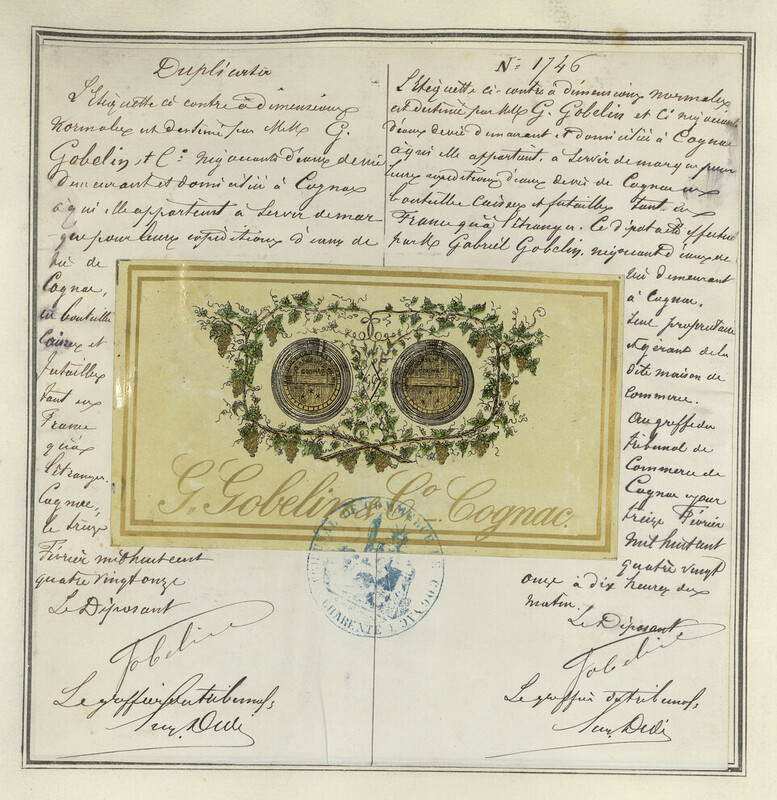 Duplicata
L'Etiquette ci contre à dimensions
normales est destinée par MM. G.
Gobelin et Cie négociants d'eaux de vie
demeurant et domiciliés à Cognac
à qui elle appartient à servir de mar-
que pour leurs expéditions d'eaux de
vie de
Cognac,
en bouteilles
Caisses et
futailles
tant en
France
qu'à
l'étranger.
Cognac,
le treize
Février mil huit cent
quatre vingt onze
Le Déposant
Gobelin
Le greffier du tribunal,
N° 1746
L'Etiquette ci-contre à dimensions normales
est destinée par MM. G. Gobelin et Cie négociants
d'eaux de vie demeurant et domiciliés à Cognac
à qui elle appartient, à servir de marque pour
leurs expéditions d'eaux de vie de Cognac en
bouteilles Caisses et futailles tant en
France qu'à l'étranger. Ce dépot a été effectué
par M. Gabriel Gobelin, négociant d'eaux de
vie demeurant
à Cognac.
Seul propriétaire
et gérant de la
dite maison de
Commerce.
Au greffe du
tribunal de
Commerce de
Cognac ce jour
treize Février
mil huit cent
quatre vingt
onze à dix heures du
matin.
Le Déposant
Gobelin
Le greffier du tribunal,
G. Gobelin & Co. Cognac.
TRIBUNAL DE COMMERCE DE COGNAC
CHARENTE